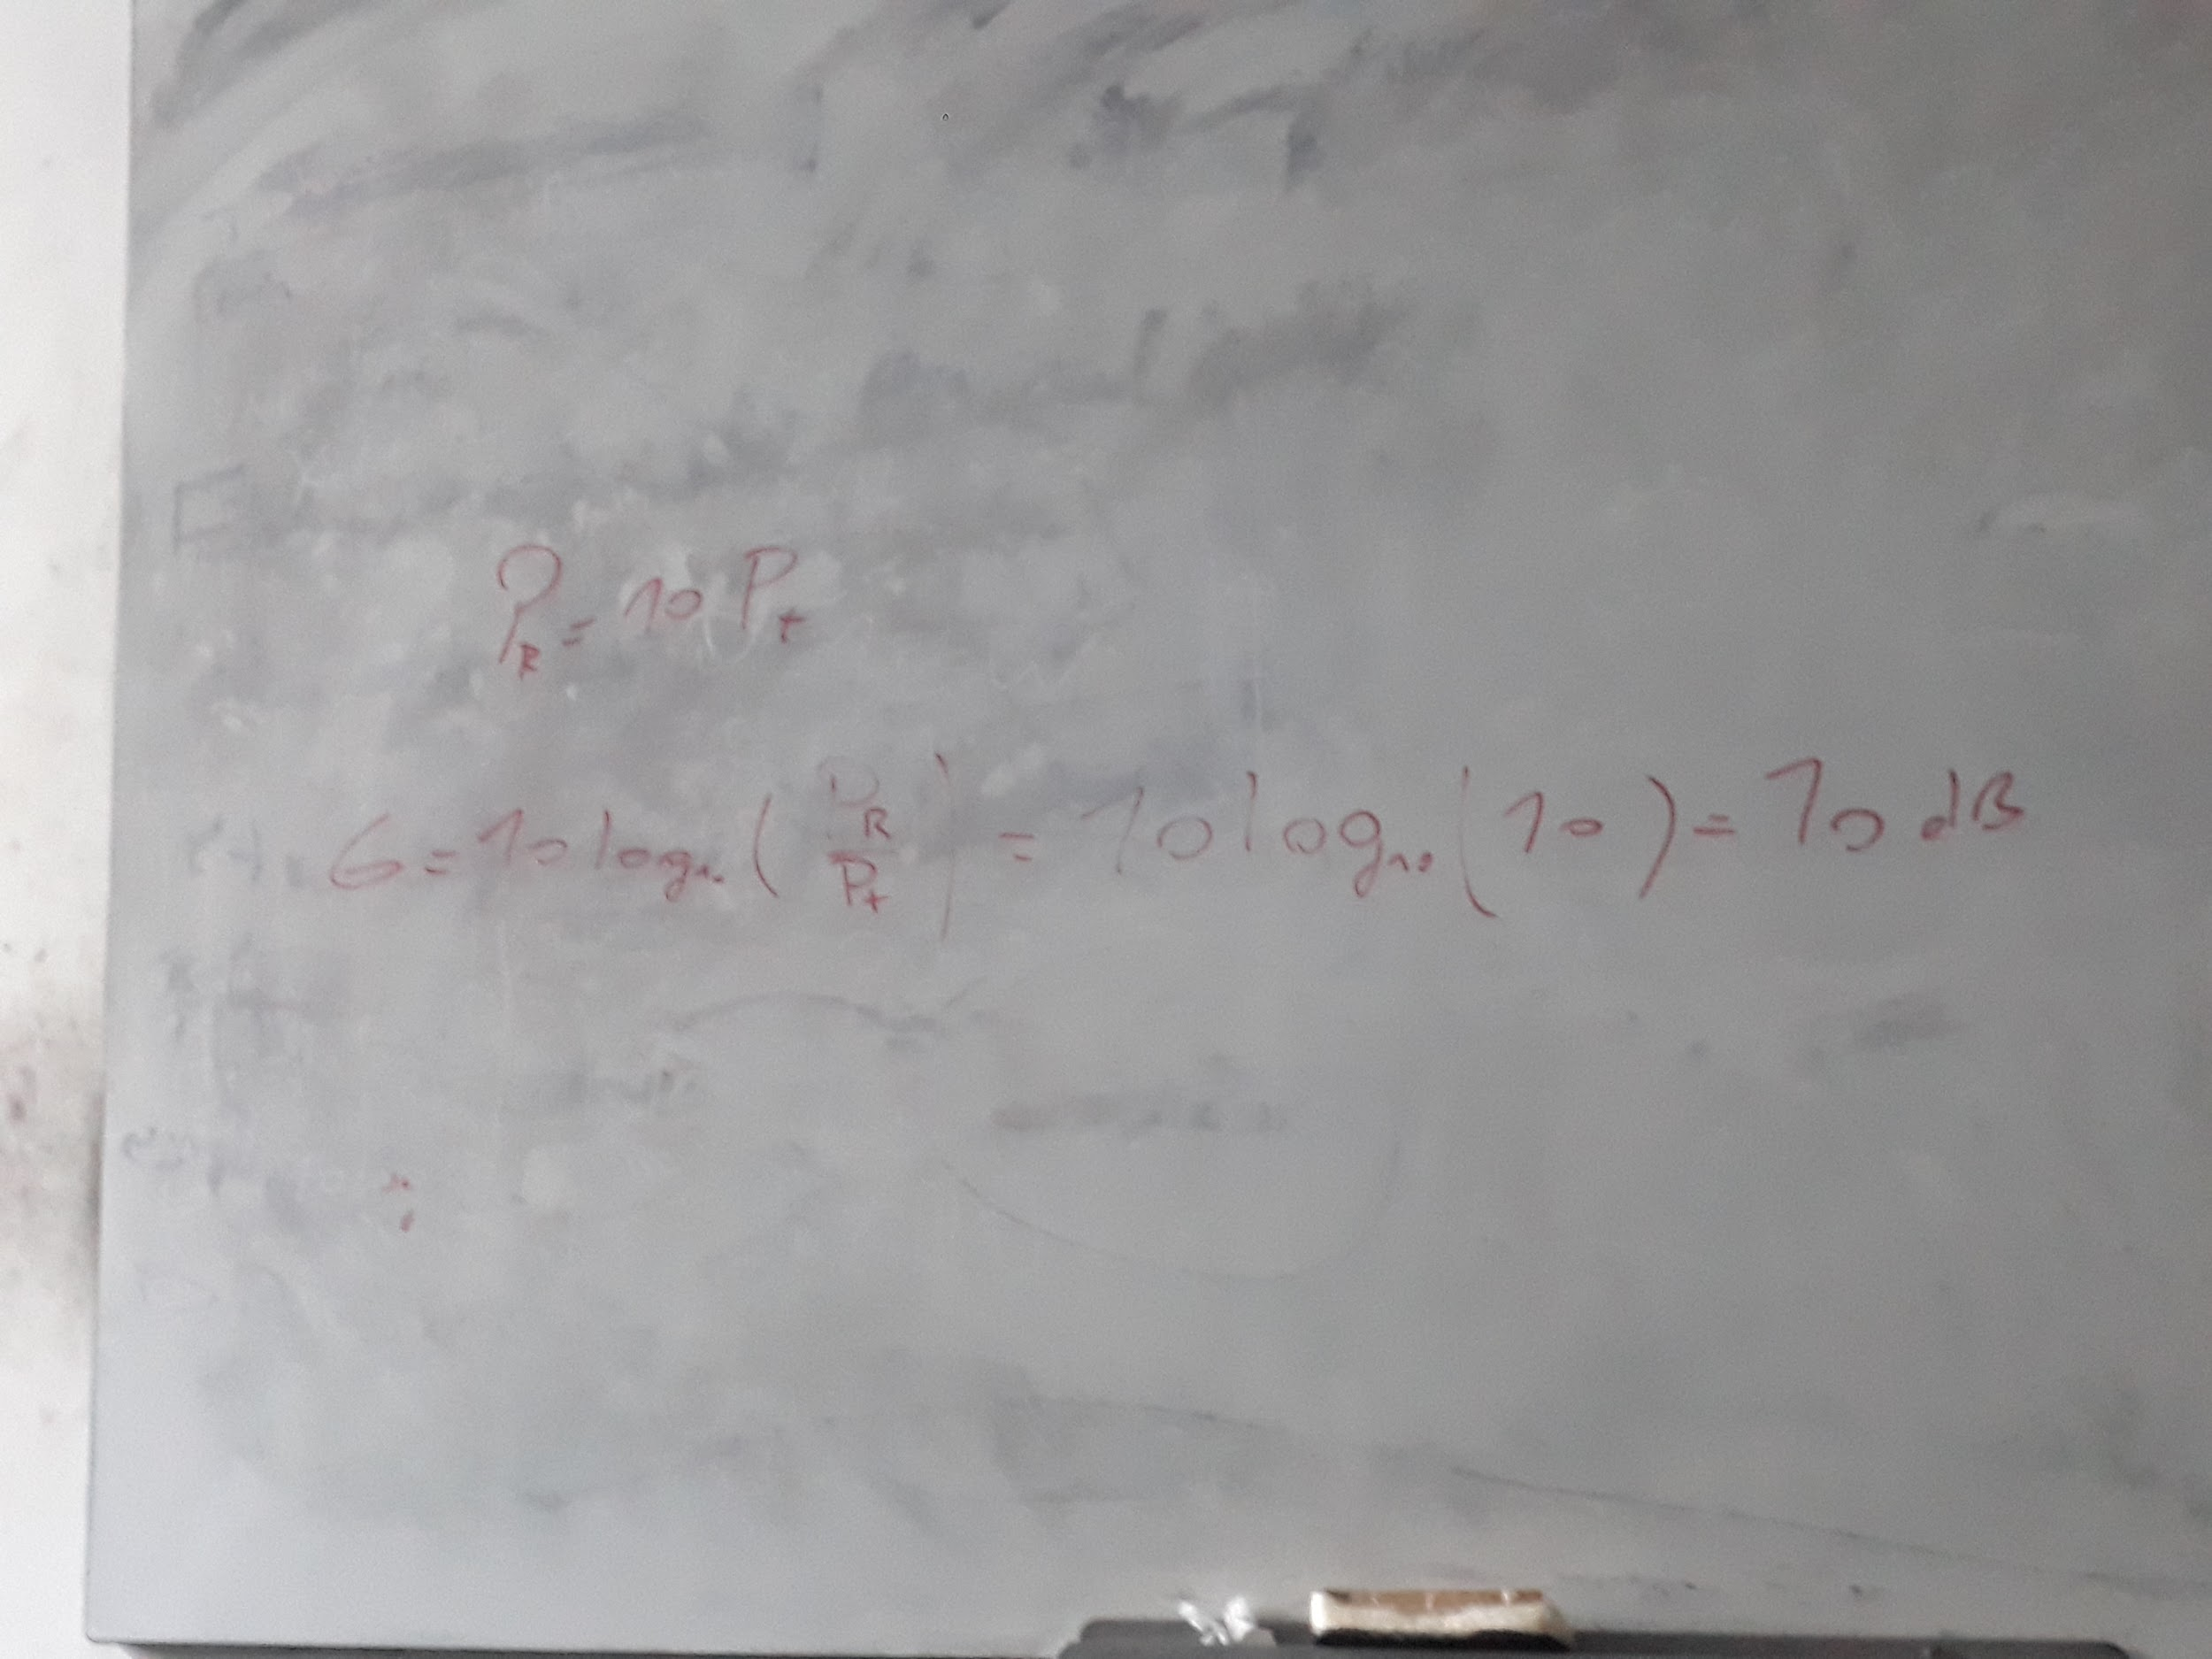 P_R = 10 P_t
G = 10 log₁₀ ( P_R / P_t ) = 10 log₁₀ ( 10 ) = 10 dB
: